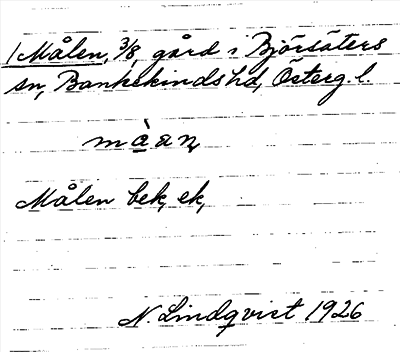 1 Målen, 3/8, gård i Björsäters
sn, Bankekinds hd, Österg. l.
Målen bek, ek,
N. Lindqvist 1926